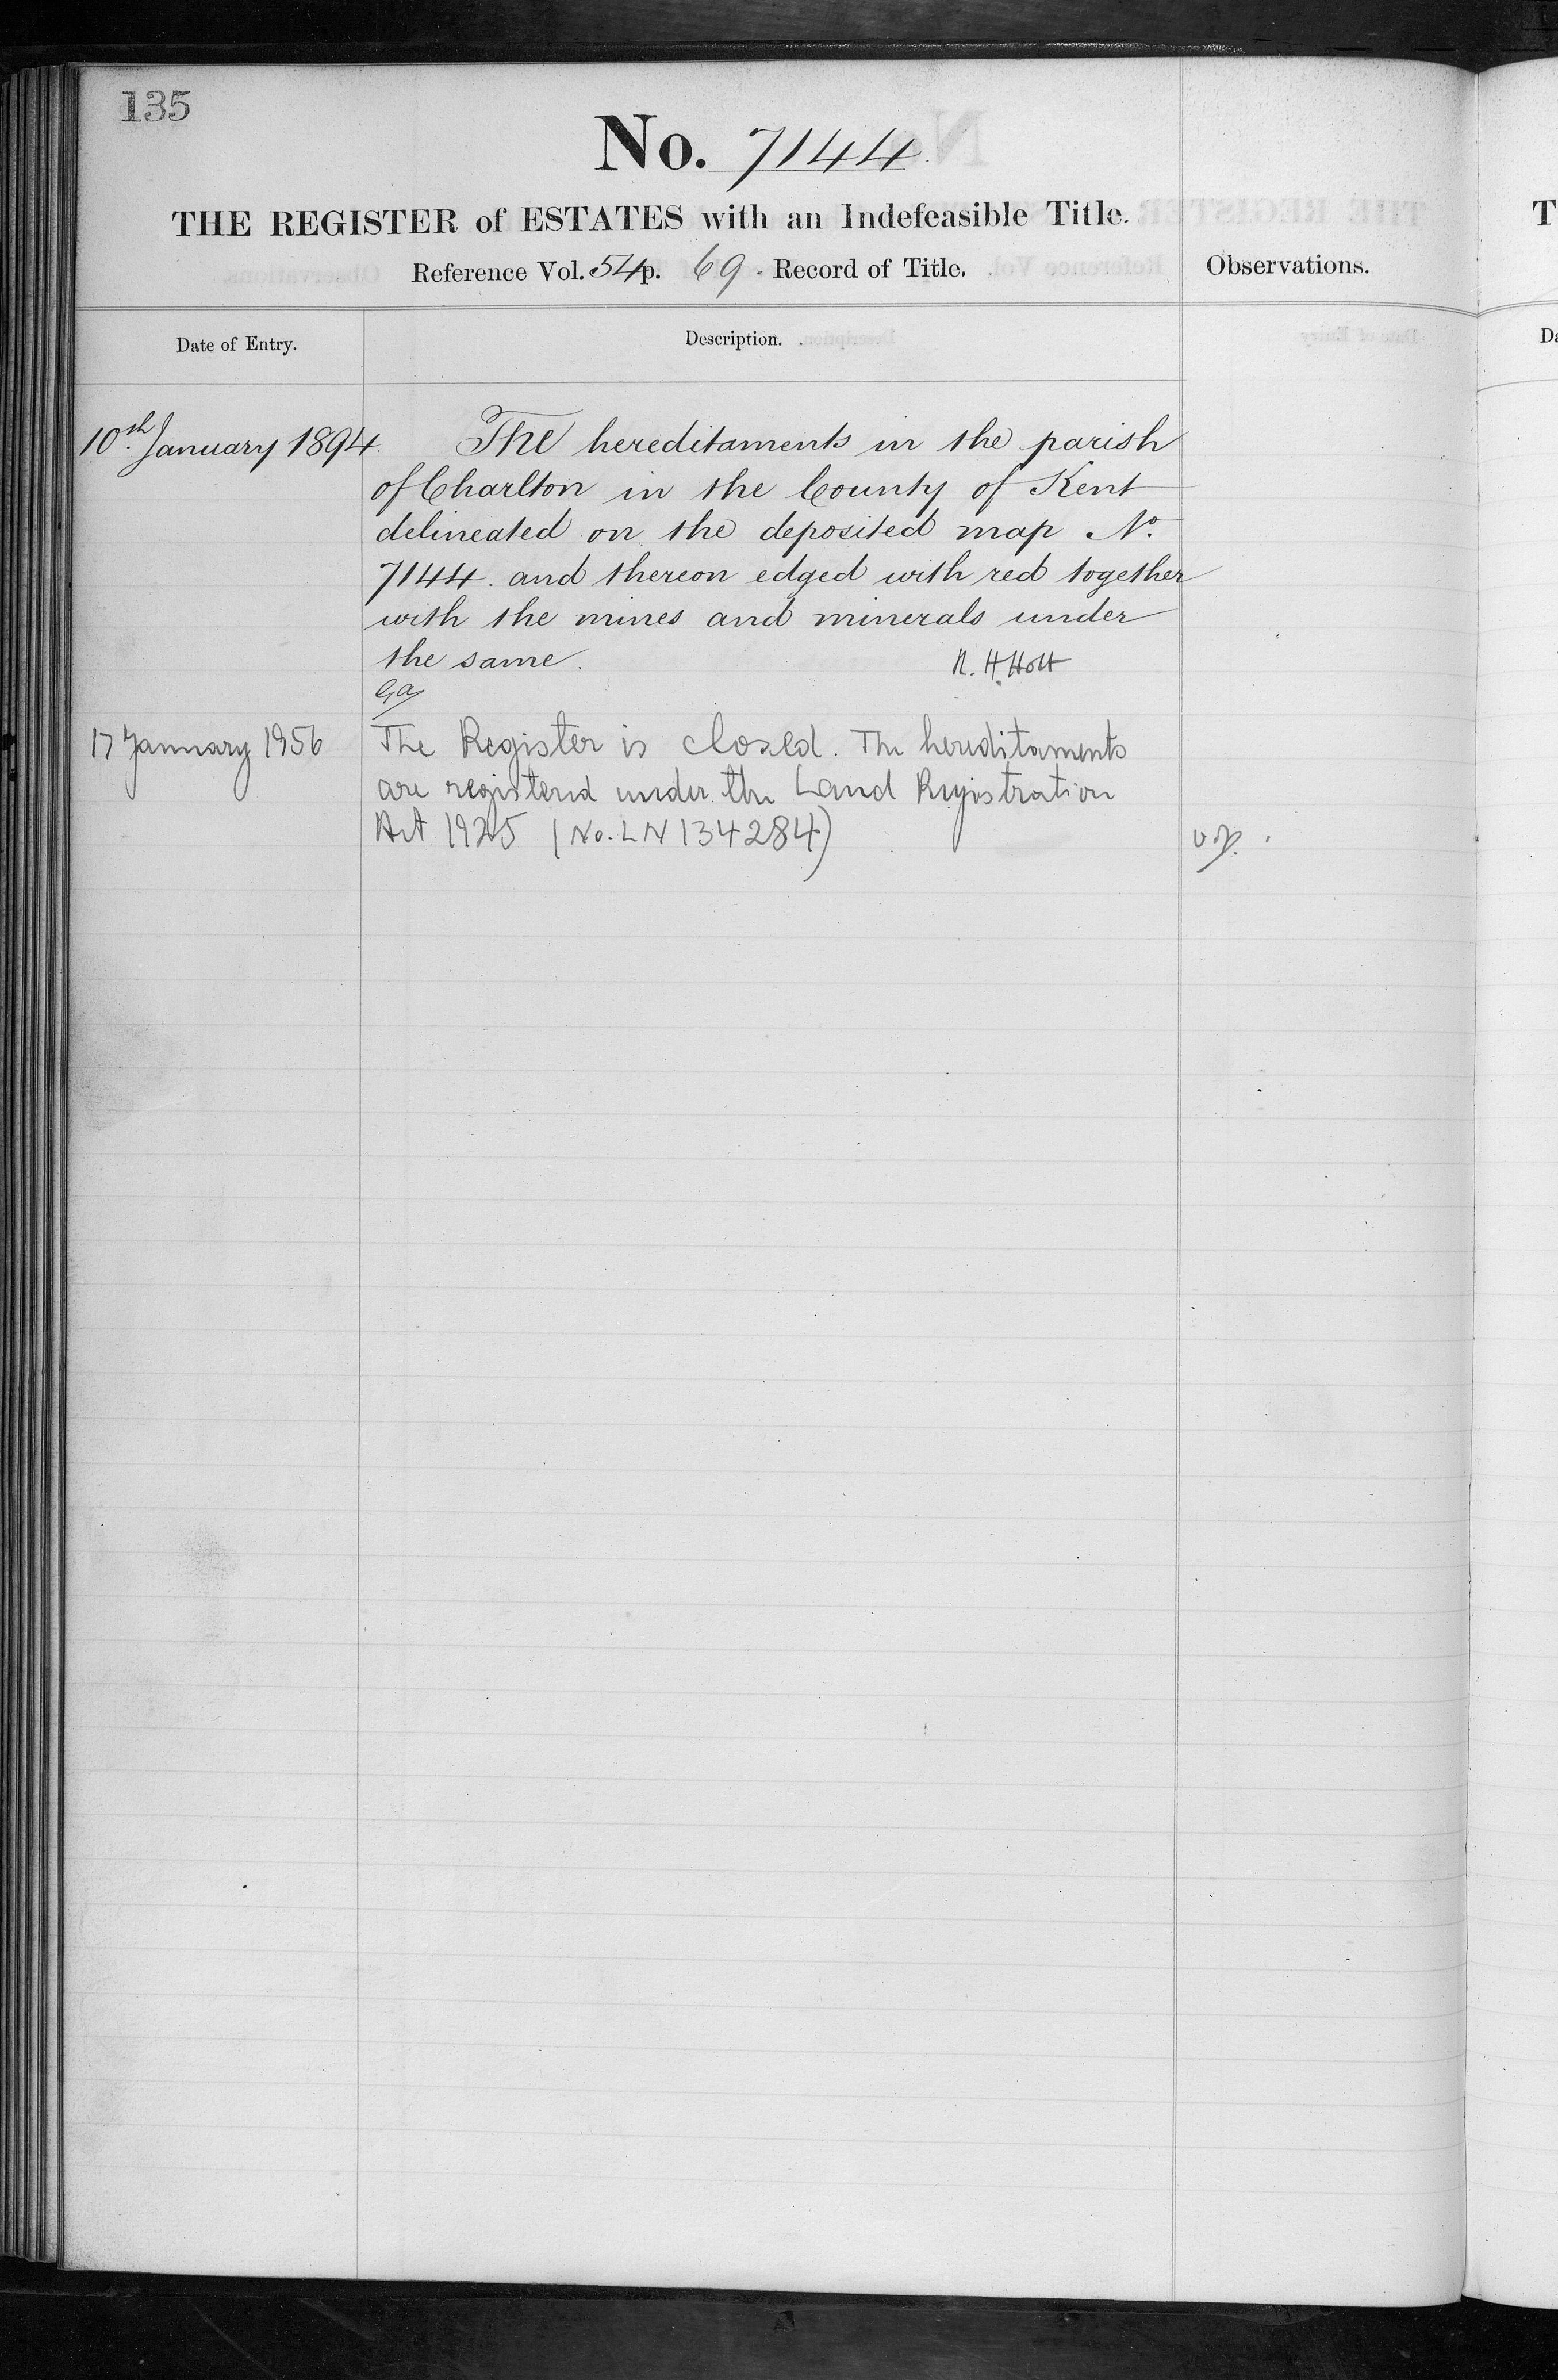 135
No. 7144.
THE REGISTER of ESTATES with an Indefeasible Title.
Reference Vol. 54 p. 69. Record of Title.
Observations.
Date of Entry.
Description.
10th January 1894.
The hereditaments in the parish
of Charlton in the County of Kent
delineated on the deposited map No.
7144. and thereon edged with red together
with the mines and minerals under
the same.
R. H. Holt
17 January 1956
The Register is closed. The hereditaments
are registered under the Land Registration
Act 1925 (No. LN 134284)
T
Da